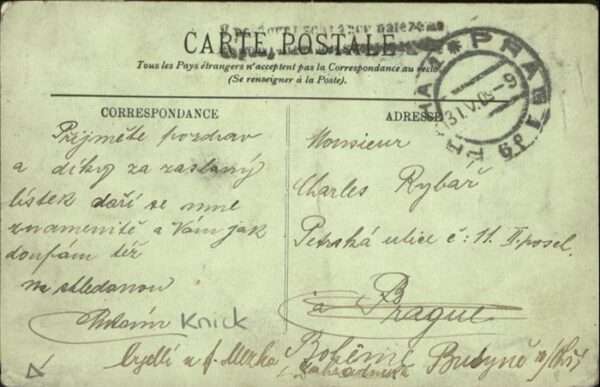 V poštovní schránce nalezeno
CARTE POSTALE
Tous les Pays étrangers n'acceptent pas la Correspondance au recto
(Se renseigner à la Poste).
CORRESPONDANCE
Přijměte pozdrav
a díky za zaslaný
lístek daří se mne
znamenitě a Vám jak
doufám též
na shledanou
Knick
ADRESSE
Monsieur
Charles Rybář
Petrská ulice č: 11. II. posch.
à Prague
Bohême
Bydlí u
Budyně n/
zahradníka
PRAHA * PRAG 1
31.V.05-9